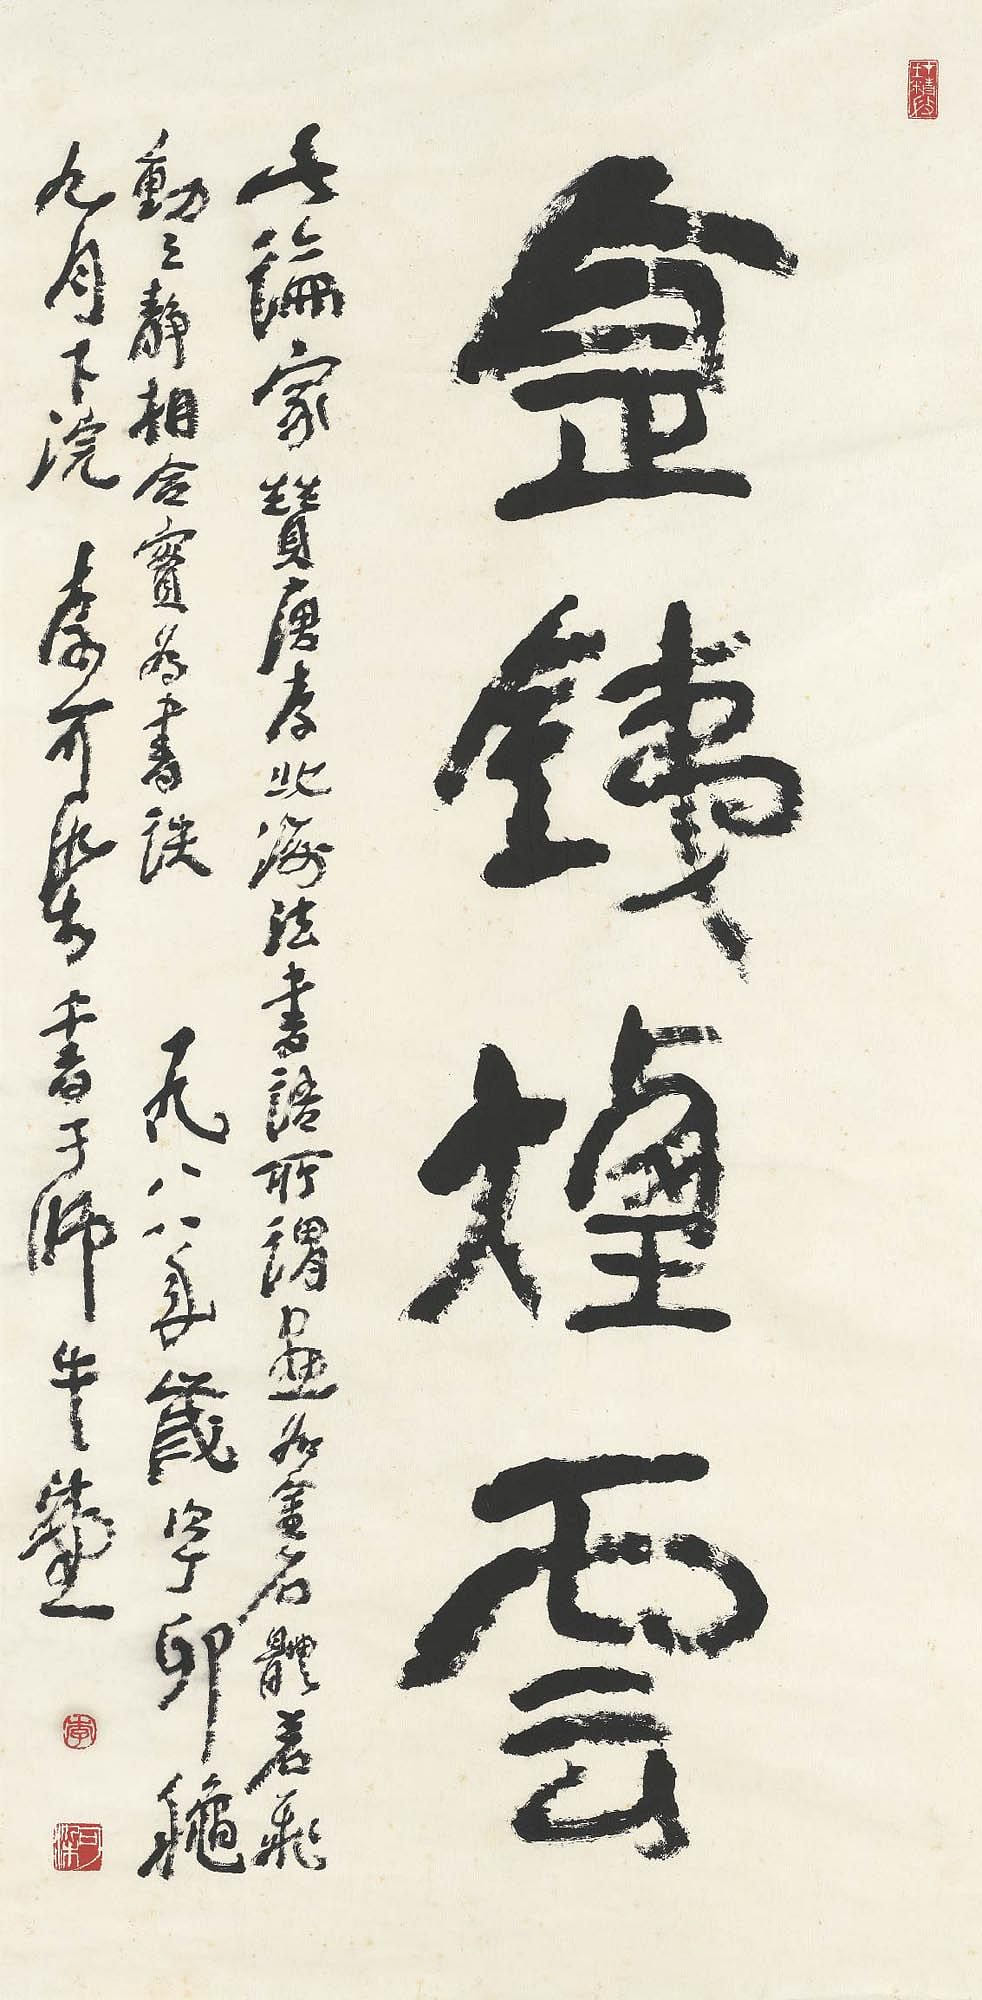 金鐵煙雲
此論家贊唐李北海法書語所謂畫如金石體若飛
動動靜相合實為書訣 一九八八年歲次丁卯龝
九月下浣 李可染書于師牛堂
李
可染